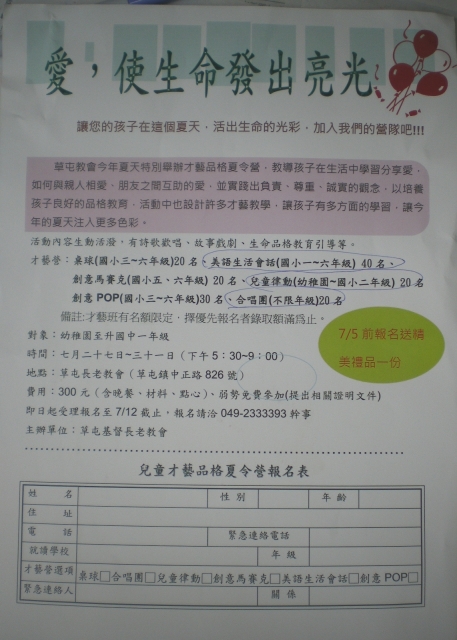 愛，使生命發出亮光
讓您的孩子在這個夏天，活出生命的光彩，加入我們的營隊吧!!!
草屯教會今年夏天特別舉辦才藝品格夏令營，教導孩子在生活中學習分享愛，
如何與親人相愛、朋友之間互助的愛，並實踐出負責、尊重、誠實的觀念，以培養
孩子良好的品格教育，活動中也設計許多才藝教學，讓孩子有多方面的學習，讓今
年的夏天注入更多色彩。
活動內容生動活潑，有詩歌歡唱、故事戲劇、生命品格教育引導等。
才藝營：桌球(國小三~六年級)20 名、美語生活會話(國小一~六年級) 40 名、
創意馬賽克(國小五、六年級) 20 名、兒童律動(幼稚園~國小二年級) 20 名
創意 POP(國小三~六年級)30 名、合唱團(不限年級)20名
備註:才藝班有名額限定，擇優先報名者錄取額滿為止。
對象：幼稚園至升國中一年級
時間：七月二十七日~三十一日（下午 5：30~9：00）
地點：草屯長老教會（草屯鎮中正路 826 號）
費用：300 元（含晚餐、材料、點心）、弱勢免費參加(提出相關證明文件)
即日起受理報名至 7/12 截止，報名請洽 049-2333393 幹事
主辦單位：草屯基督長老教會
7/5 前報名送精
美禮品一份
兒童才藝品格夏令營報名表
姓 名 性 別 年 齡
住 址
電 話 緊急連絡電話
就讀學校 年 級
才藝營選項 桌球□合唱團□兒童律動□創意馬賽克□美語生活會話□創意 POP□
緊急連絡人 關 係